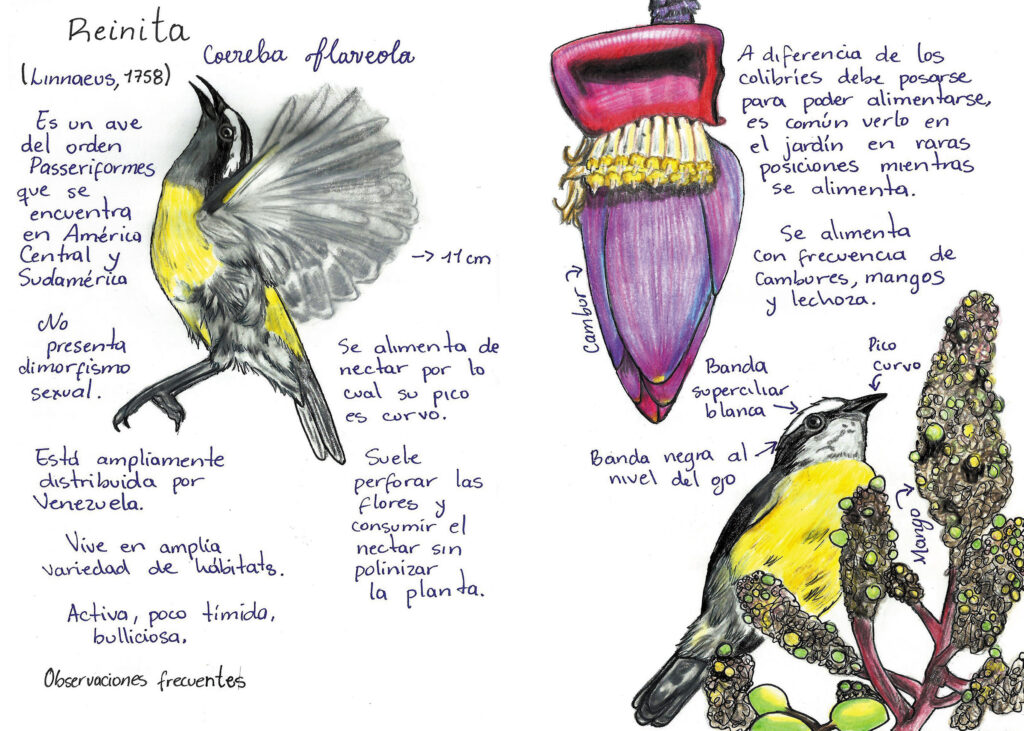 Reinita
Coereba flaveola
(Linnaeus, 1758)
Es un ave
del orden
Passeriformes
que se
encuentra
en América
Central y
Sudamérica
→ 11 cm
No
presenta
dimorfismo
sexual.
Se alimenta de
nectar por lo
cual su pico
es curvo.
Está ampliamente
distribuida por
Venezuela.
Suele
perforar las
flores y
consumir el
nectar sin
polinizar
la planta.
Vive en amplia
variedad de hábitats.
Activa, poco tímida,
bulliciosa.
Observaciones frecuentes
A diferencia de los
colibríes debe posarse
para poder alimentarse,
es común verlo en
el jardín en raras
posiciones mientras
se alimenta.
Se alimenta
con frecuencia de
Cambures, mangos
y lechoza.
Cambur
Banda
superciliar
blanca
Pico
curvo
Banda negra al
nivel del ojo
Mango